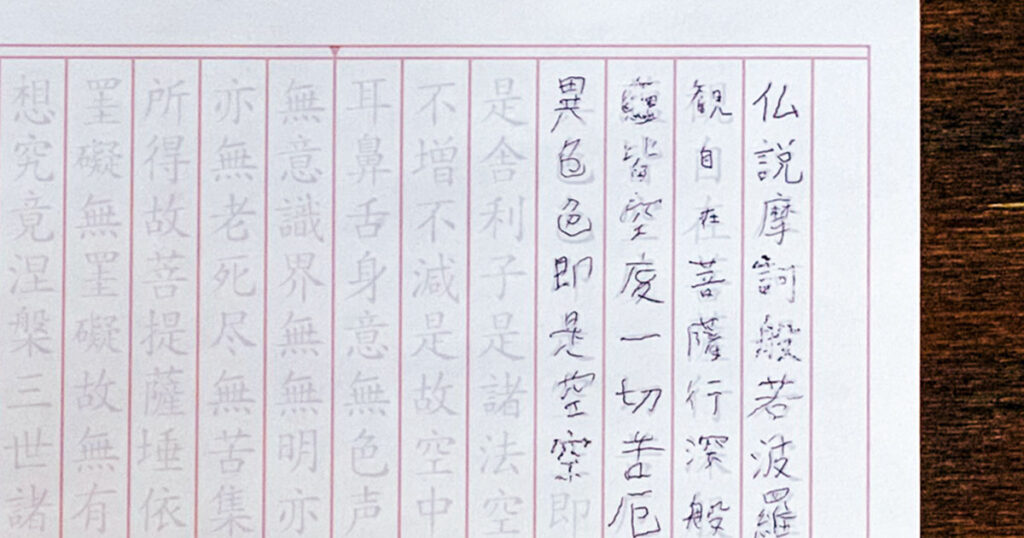 仏説摩訶般若波羅
観自在菩薩行深般
蘊皆空度一切苦厄
異色色即是空空即
是舎利子是諸法空
不増不減是故空中
耳鼻舌身意無色声
無意識界無無明亦
亦無老死尽無苦集
所得故菩提薩埵依
罣礙無罣礙故無有
想究竟涅槃三世諸